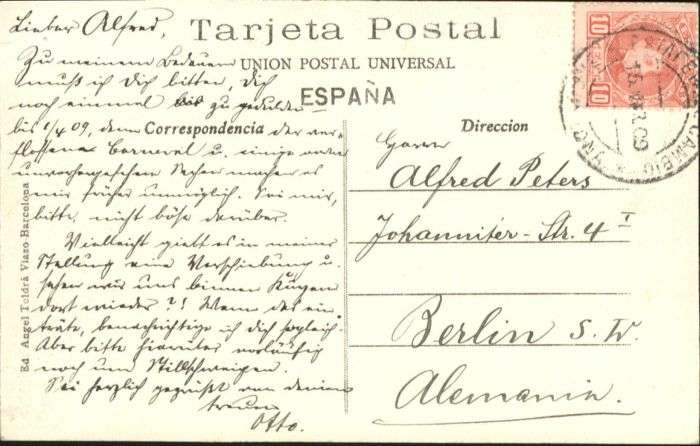 Tarjeta Postal
UNION POSTAL UNIVERSAL
ESPAÑA
Correspondencia
Direccion
Lieber Alfred,
Zu meinem Bedauern
muß ich Dich bitten, Dich
noch einmal zu gedulden
bis 1/4 09, denn der ver-
flossene Carneval u. einige andere
unvorhergesehen Sachen machen es
mir früher unmöglich. Sei mir,
bitte, nicht böse darüber.
Vielleicht giebt es in meiner
Stellung eine Verschiebung u.
sehen wir uns binnen Kurzem
dort wieder?! Wenn das ein-
träte, benachrichtige ich Dich sogleich.
Aber bitte hierüber vorläufig
noch um Stillschweigen.
Sei herzlich gegrüßt von deinem
treuen
Otto.
Herrn
Alfred Peters
Johanniter-Str. 4 I
Berlin S.W.
Alemania.
10 10
Ed. Angel Toldrá Viazo-Barcelona